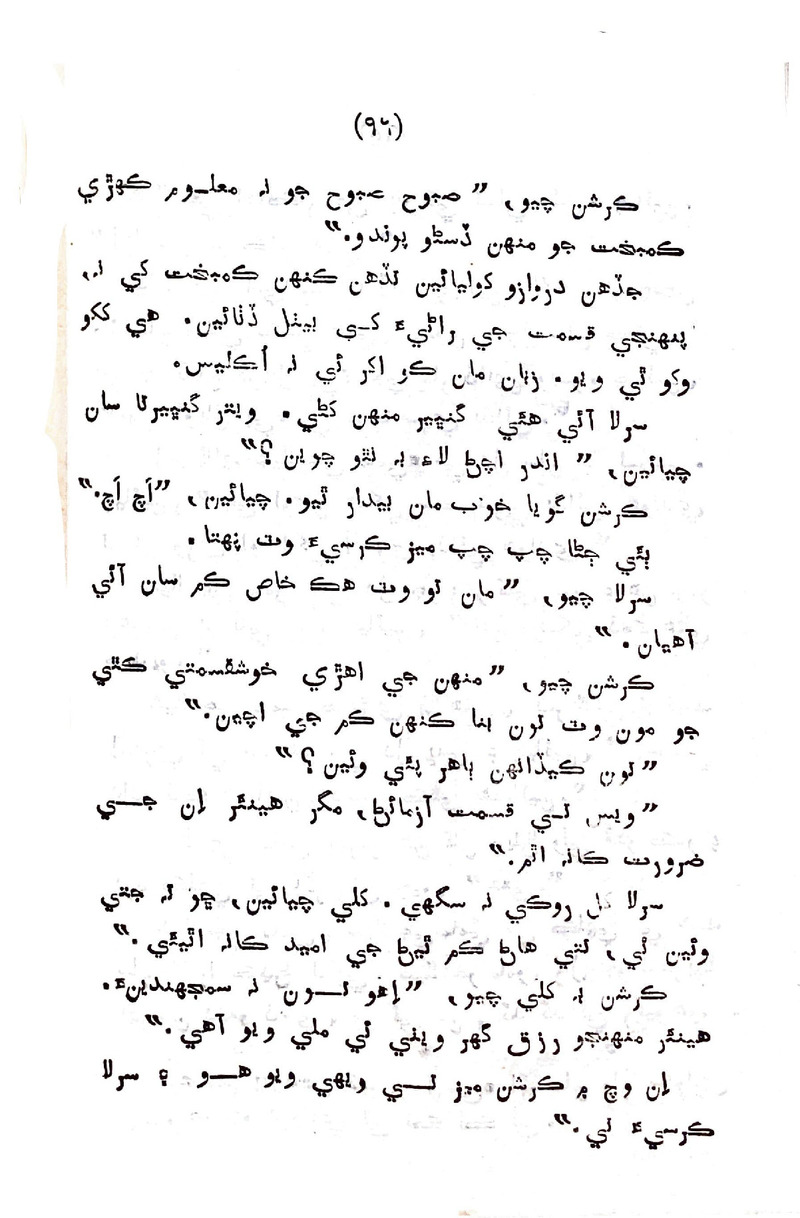 (۹۶)
ڪرشن چيو، ”صبوح صبوح جو نہ معلوم ڪھڙي
ڪمبخت جو منھن ڏسڻو پوندو.“
جڏھن دروازو کوليائين تڏھن ڪنھن ڪمبخت کي نہ،
پنھنجي قسمت جي راڻيءَ کي بيٺل ڏٺائين. ھي ھڪو
وڪو ٿي ويو. زبان مان ڪو اکر ئي نہ اُڪليس.
سرلا آئي ھئي گنڀير منھن کڻي. ويتر گنڀيرتا سان
چيائين، ”اندر اچڻ لاءِ بہ نٿو چوين؟“
ڪرشن گويا خواب مان بيدار ٿيو. چيائين، ”اَچ اَچ.“
ٻئي ڄڻا چپ چپ ميز ڪرسيءَ وٽ پھتا.
سرلا چيو، ”مان تو وٽ ھڪ خاص ڪم سان آئي
آھيان.“
ڪرشن چيو، ”منھن جي اھڙي خوشقسمتي ڪٿي
جو مون وٽ تون بنا ڪنھن ڪم جي اچين.“
”تون ڪيڏانھن ٻاھر پئي وئين؟“
”ويس ٿي قسمت آزمائڻ، مگر ھينئر اِن جي
ضرورت ڪانہ اٿم.“
سرلا کل روڪي نہ سگھي. کلي چيائين، ڇو تہ جتي
وئين ٿي، تتي ھاڻ ڪم ٿيڻ جي اميد ڪانہ اٿيئي.“
ڪرشن بہ کلي چيو، ”اِھو تون نہ سمجھندينءَ.
ھينئر منھنجو رزق گھر ويٺي ئي ملي ويو آھي.“
اِن وچ ۾ ڪرشن ميز تي ويھي ويو ھو ۽ سرلا
ڪرسيءَ تي.“